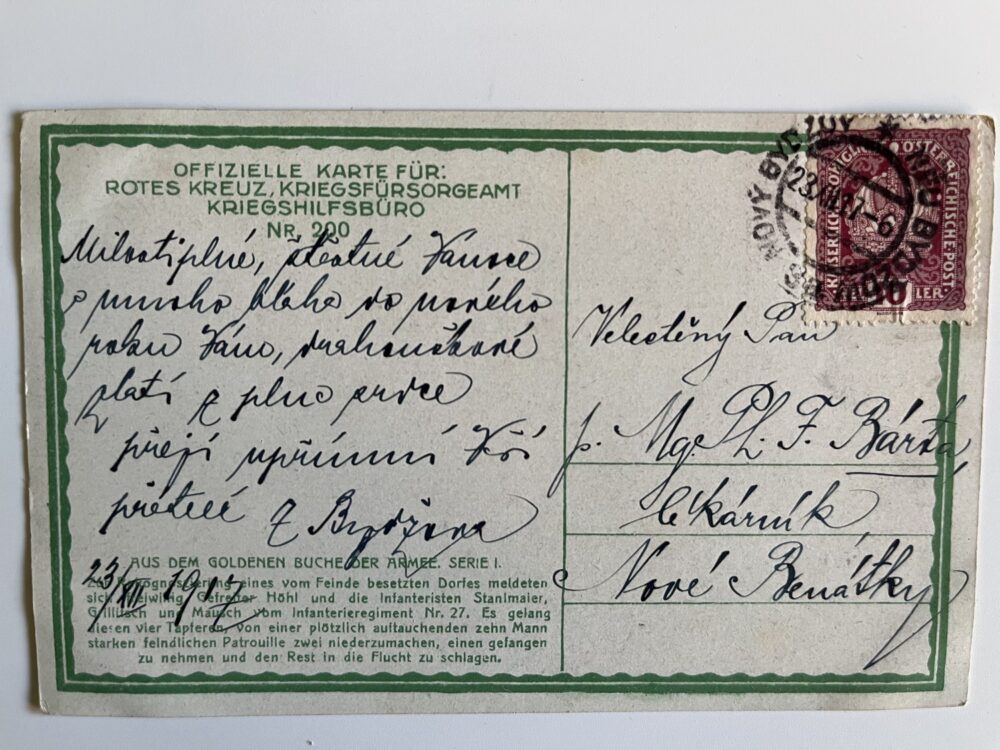 OFFIZIELLE KARTE FÜR:
ROTES KREUZ, KRIEGSFÜRSORGEAMT
KRIEGSHILFSBÜRO
NR. 200
Milostiplné, šťastné Vánoce
a mnoho blaha do nového
roku Vám, drahouškové
zlatí z plna srdce
přejí upřímní Vaši
přátelé z Bydžova
23/XII 1917
AUS DEM GOLDENEN BUCHE DER ARMEE. SERIE I.
eines vom Feinde besetzten Dorfes meldeten
sich freiwillig Gefreiter Höhl und die Infanteristen Stanlmaier,
und Mausch vom Infanterieregiment Nr. 27. Es gelang
diesen vier Tapferen, von einer plötzlich auftauchenden zehn Mann
starken feindlichen Patrouille zwei niederzumachen, einen gefangen
zu nehmen und den Rest in die Flucht zu schlagen.
NOVÝ BYDŽOV
NEU BYDŽOW
23.XII.17-6
KAISERLICHE KÖNIGLICHE ÖSTERREICHISCHE POST
Velectěný Pan
p. Mg. Ph. F. Bárta,
lékárník
Nové Benátky